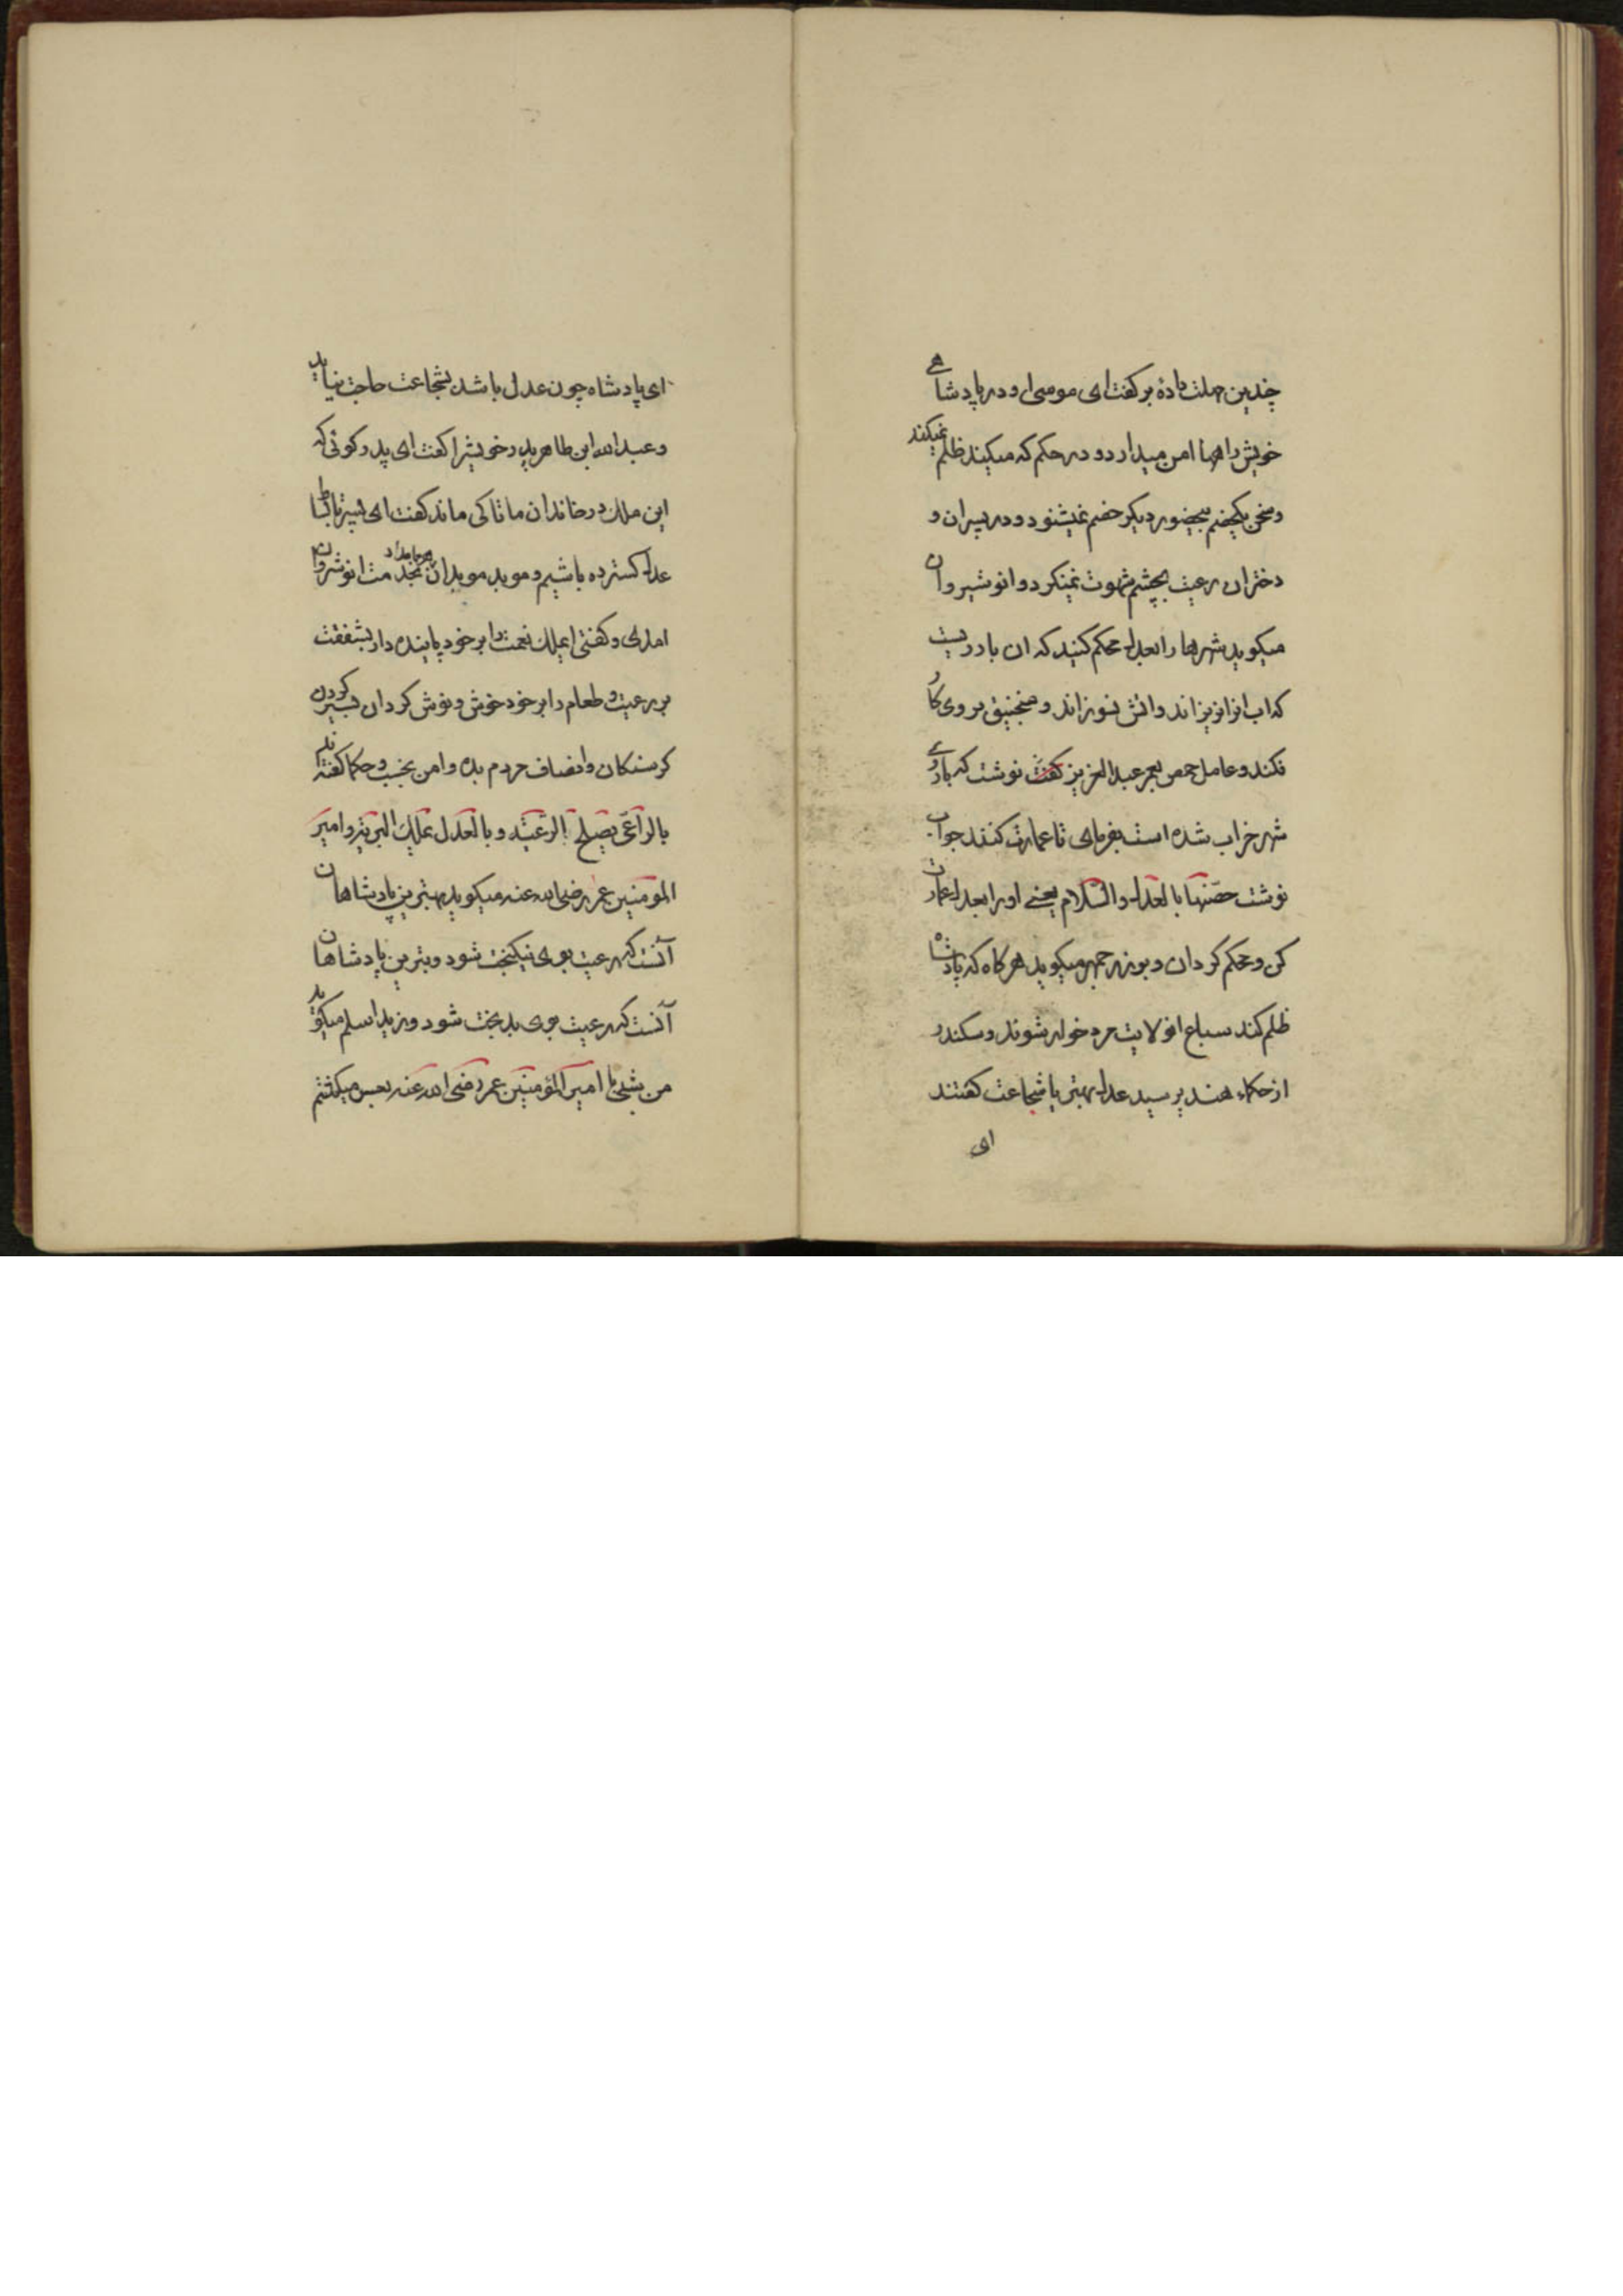 چندین مهلت دادهٔ بر گفت ای موسی او در پادشاهے
خویش راهها امن میدارد و در حکم که میکند ظلم نمیکند
و سخن یکخصم بیحضور دیکر خصم نمیشنود و در پسران و
دختران رعیت بچشم شهوت نمینکرد و انوشیروان
میکوید شهرها را بعدل محکم کنید که ان بارویست
که اب انرا نریزاند و اتش نسوزاند و منجنیق بروی کار
نکند و عامل حمص بعمر عبدالعزیز کفت نوشت که باروی
شهر خراب شده است بفرمای تا عمارت کنند جواب
نوشت حصّنها بالعدل والسّلام یعنے او را بعدل عمارت
کن و محکم کردان و بوزرجمهر میکوید هرکاه که پادشاه
ظلم کند سباع ان ولایت مردم خوار شوند و سکندر
از حکماء هند پرسید عدل بهتر یا شجاعت کفتند
ای
ای پادشاه چون عدل باشد بشجاعت حاجت نیاید
و عبدالله ابن طاهر پدر خویشرا کفت ای پدر کوئی که
این ملک در خاندان ما تا کی ماند کفت ای پسر تا بساط
عدل کسترده باشیم و موبد موبدان هر بامداد بخدمت انوشروان
امدی و کفتی ایملک نعمت را بر خود پاینده دار بشفقت
بر رعیت و طعام را بر خود خوش و نوش کردان بسیر کردن
کرسنکان و انصاف مردم بده و امن بخسب و حکما کفته اند
بالرّاعی یصلح الرّعیّه و بالعدل یملک البریّه و امیر
المومنین عمر رضی الله عنه میکوید بهترین پادشاهان
آنست که رعیت بوی نیکبخت شود و بترین پادشاهان
آنست که رعیت بوی بدبخت شود و زید اسلم میکوید
من بشبی با امیر المؤمنین عمر رضی الله عنه بعسس میکشتم